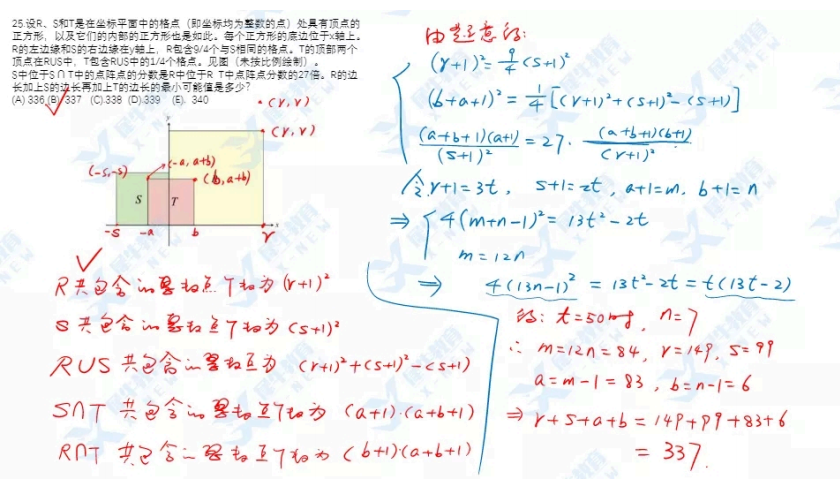 25.设R、S和T是在坐标平面中的格点（即坐标均为整数的点）处具有顶点的
正方形，以及它们的内部的正方形也是如此。每个正方形的底边位于x轴上。
R的左边缘和S的右边缘在y轴上，R包含9/4个与S相同的格点。T的顶部两个
顶点在RUS中，T包含RUS中的1/4个格点。见图（未按比例绘制）。
S中位于S∩T中的点阵点的分数是R中位于R T中点阵点分数的27倍。R的边
长加上S的边长再加上T的边长的最小可能值是多少?
(A) 336 (B) 337 (C).338 (D).339 (E). 340
(r,r)
(r,r)
y
(-a, a+b)
(-s,-s)
(b,a+b)
S
T
x
-s
-a
b
r
R共包含的整构点个数为(r+1)²
S共包含的整构点个数为(s+1)²
RUS共包含的整构点为 (r+1)²+(s+1)²-(s+1)
S∩T 共包含的整构点个数为 (a+1)·(a+b+1)
R∩T 共包含的整构点个数为 (b+1)·(a+b+1)
由题意得:
(r+1)²=9/4(s+1)²
(b+a+1)²=1/4[(r+1)²+(s+1)²-(s+1)]
(a+b+1)(a+1)/(s+1)²=27·(a+b+1)(b+1)/(r+1)²
令r+1=3t, s+1=2t, a+1=m, b+1=n
⇒ 4(m+n-1)²=13t²-2t
m=12n
⇒ 4(13n-1)²=13t²-2t=t(13t-2)
得: t=50时, n=7
∴ m=12n=84, r=149, s=99
a=m-1=83, b=n-1=6
⇒ r+s+a+b=149+99+83+6
=337.